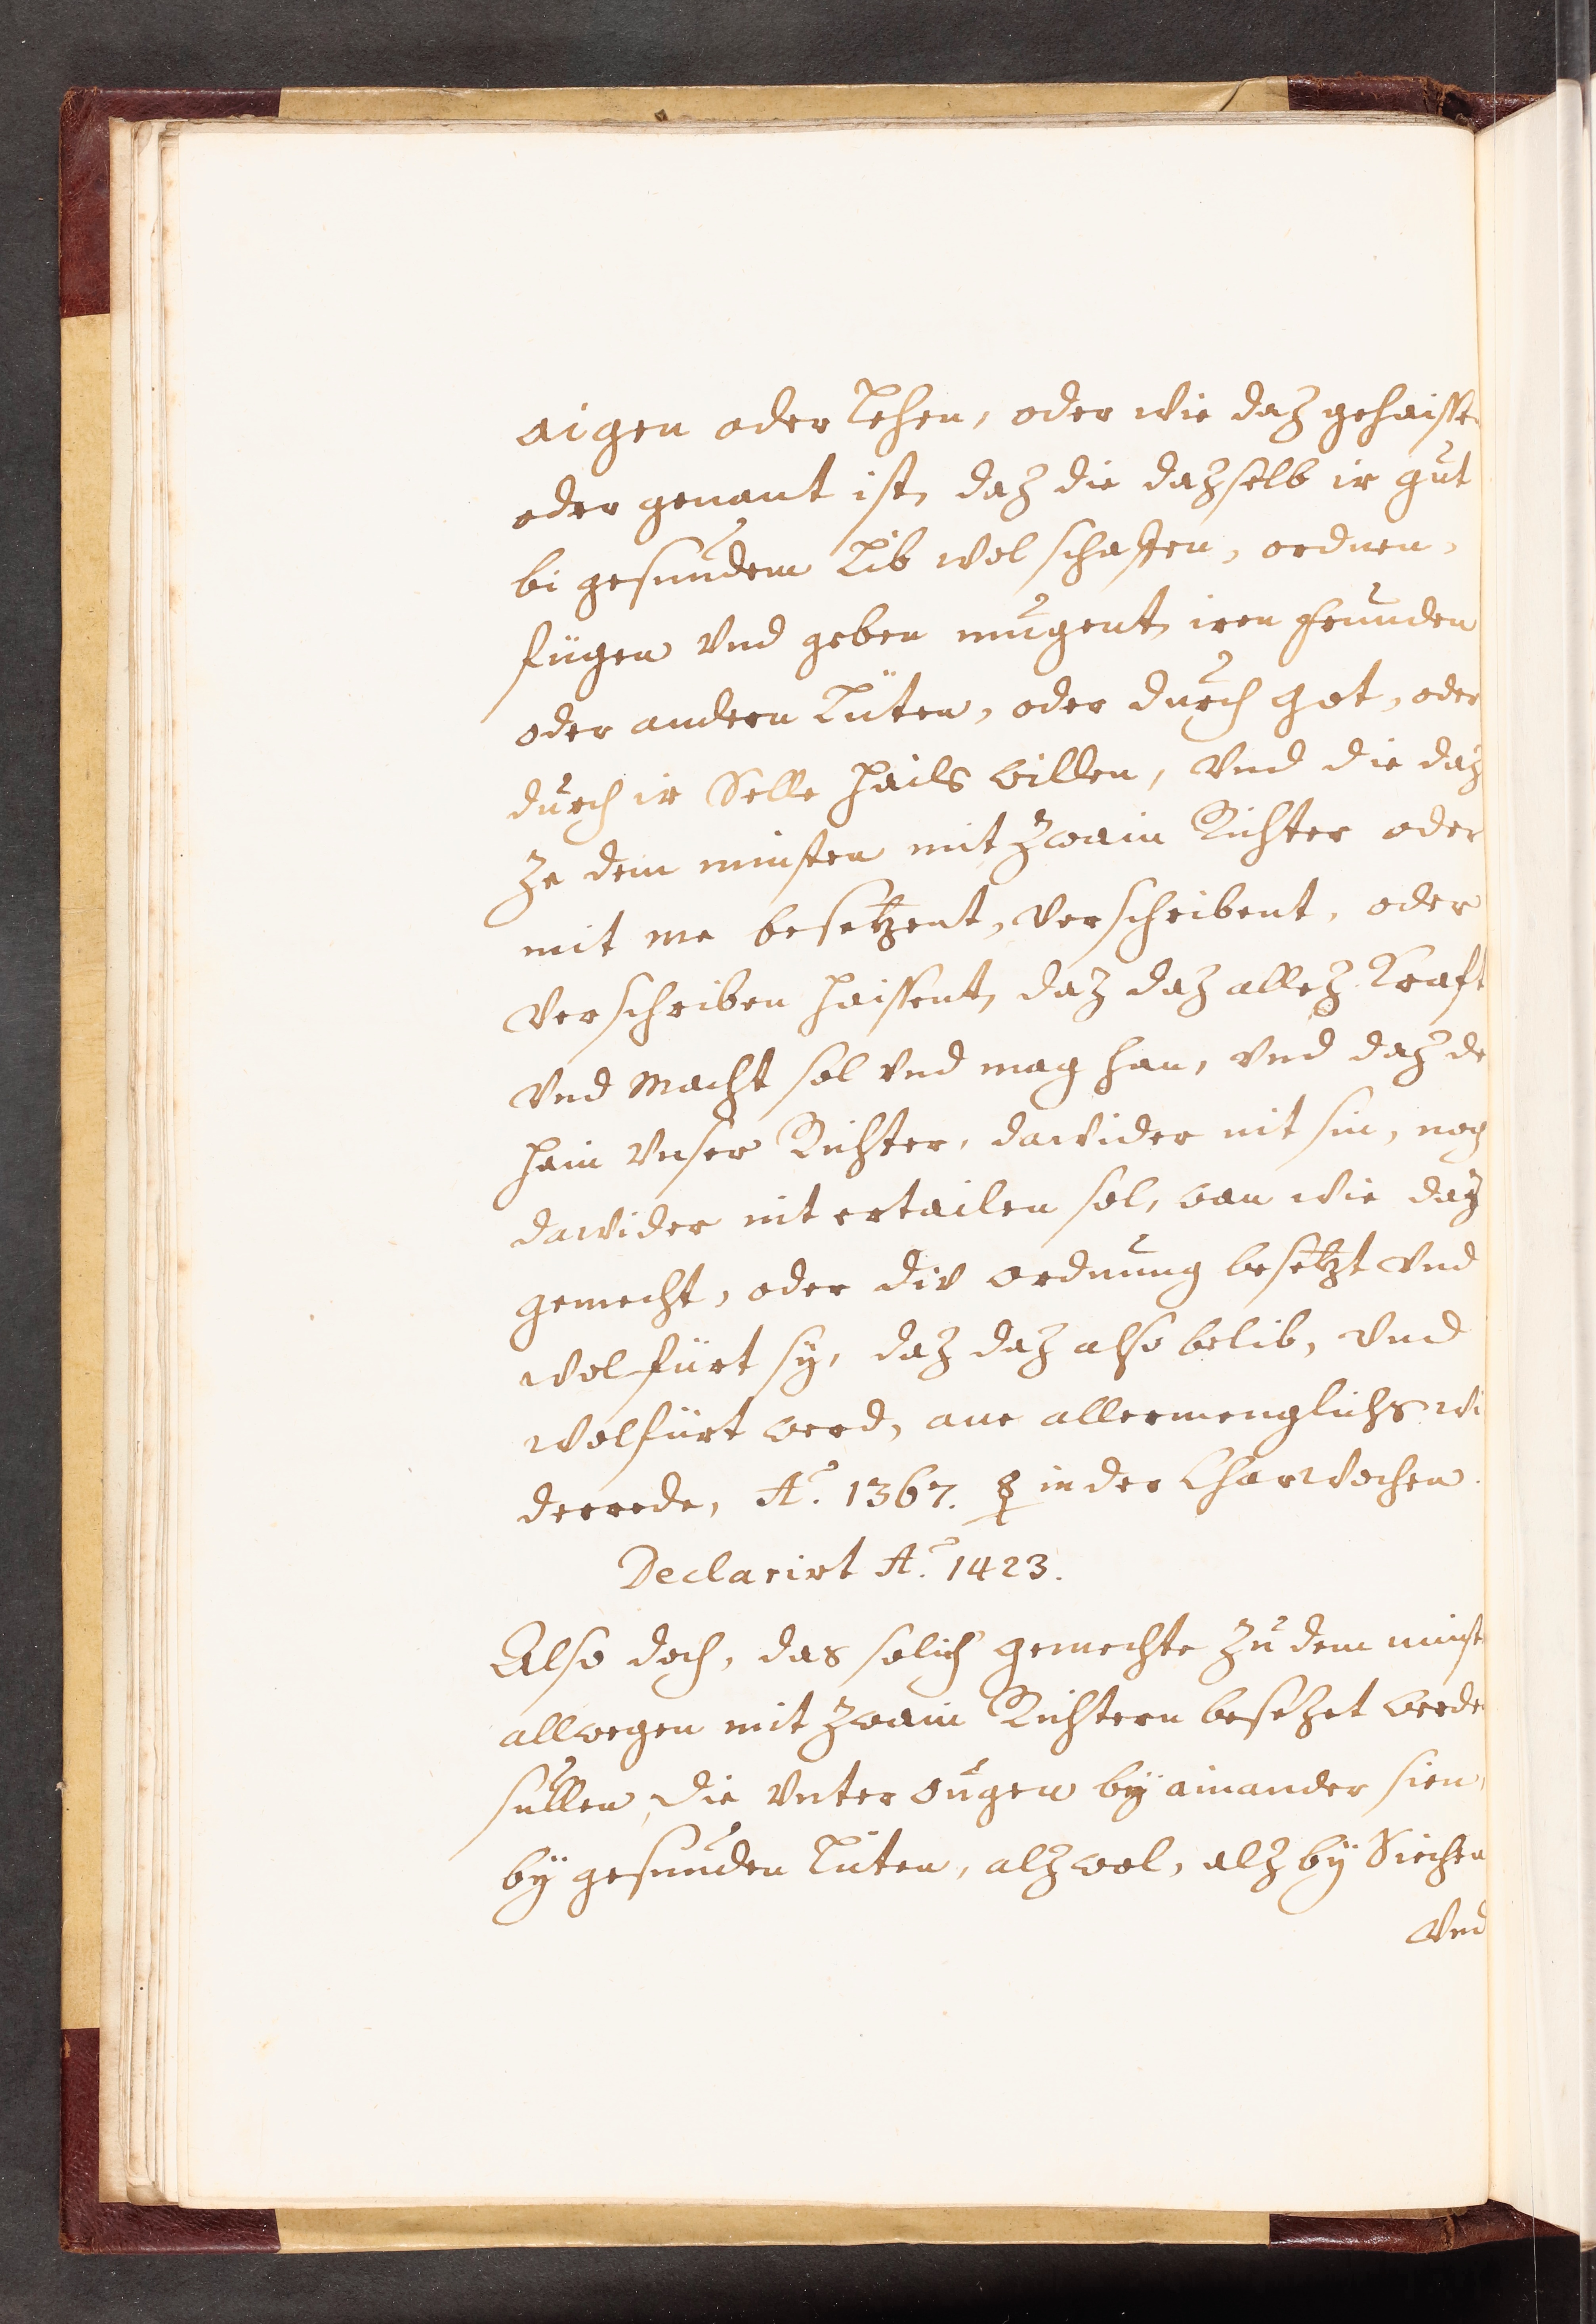 aigen oder Lehen, oder wie daz gehaisse
oder genant ist, daz die dazselb ir gut
bi gesundem Lib wol schaffen, ordnen,
fügen vnd geben mugent, iren frunden
oder andern Lüten, oder durch got, oder
durch ir Selle hails willen, vnd die daz
ze dem minsten mit zwain Richter oder
mit me besetzent, verschribent, oder
verschriben haissent, daz daz allez Kraft
vnd Macht sol vnd mag han, vnd daz de
hain vnser Richter, dawider nit sin, noch
dawider nit ertailen sol, wan wie daz
gemecht, oder div ordnung besetzt vnd
wolfürt sÿ, daz daz also belib, vnd
wolfürt werd, ane allermenglichs wi
derrede, Ao. 1367. ☿ in der Charwochen.
Declarirt Ao. 1423.
Also doch, das solich gemechte zu dem minst
allwegen mit zwain Richtern besetzet werde
sullen, die vnter ougen bÿ ainander sien,
bÿ gesunden Lüten, alz wol, alz bÿ Siechen
vnd